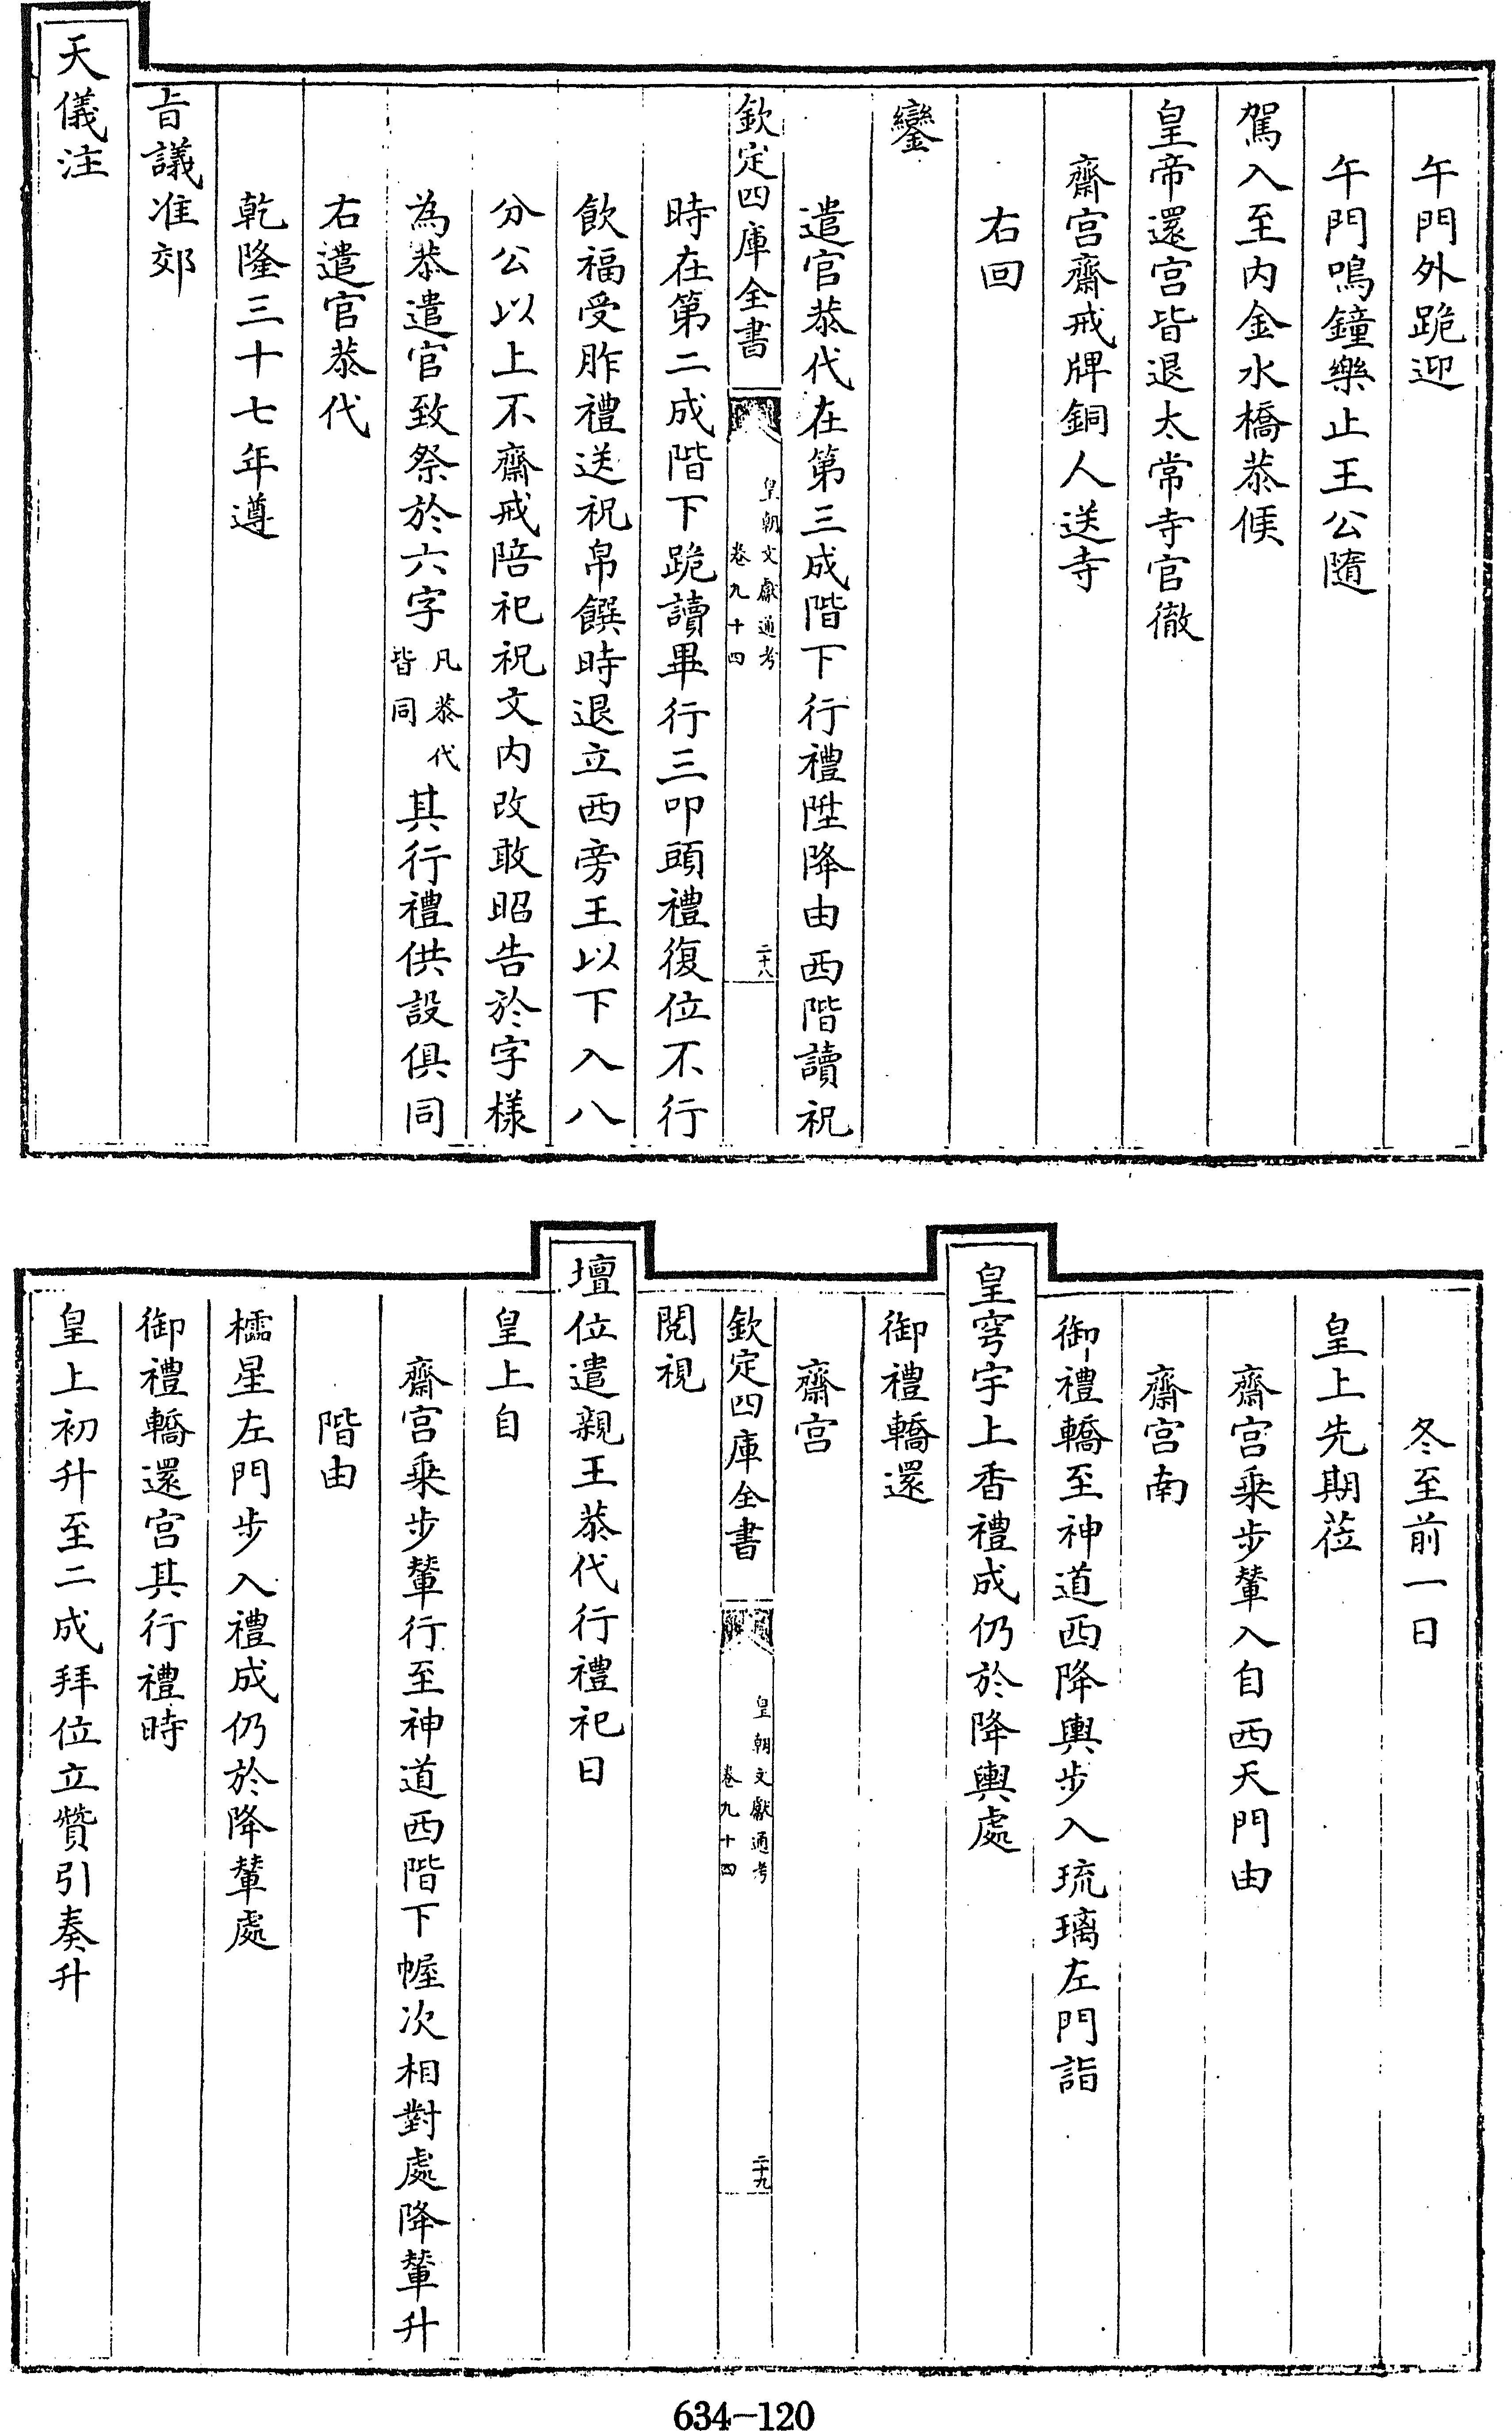 午門外跪迎
午門鳴鐘樂止王公隨
駕入至内金水橋恭候
皇帝還宫皆退太常寺官徹
齋宫齋戒牌銅人送寺
右回
鑾
遣官恭代在第三成階下行禮陞降由西階讀祝
欽定四庫全書
皇朝文獻通考
卷九十四
二十八
時在第二成階下跪讀畢行三叩頭禮復位不行
飲福受胙禮送祝帛饌時退立西旁王以下入八
分公以上不齋戒陪祀祝文内改敢昭告於字様
為恭遣官致祭於六字
凡恭代
皆同
其行禮供設俱同
右遣官恭代
乾隆三十七年遵
旨議准郊
天儀注
冬至前一日
皇上先期莅
齋宫乗步輦入自西天門由
齋宫南
御禮轎至神道西降輿步入琉璃左門詣
皇穹宇上香禮成仍於降輿處
御禮轎還
齋宫
欽定四庫全書
皇朝文獻通考
卷九十四
二十九
閲視
壇位遣親王恭代行禮祀日
皇上自
齋宫乗步輦行至神道西階下幄次相對處降輦升
階由
櫺星左門步入禮成仍於降輦處
御禮轎還宫其行禮時
皇上初升至二成拜位立贊引奏升
634-120